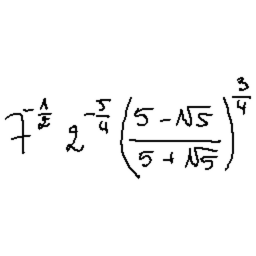 7^{-\frac{1}{2}} 2^{-\frac{5}{4}} \left(\frac{5-\sqrt{5}}{5+\sqrt{5}}\right)^{\frac{3}{4}}